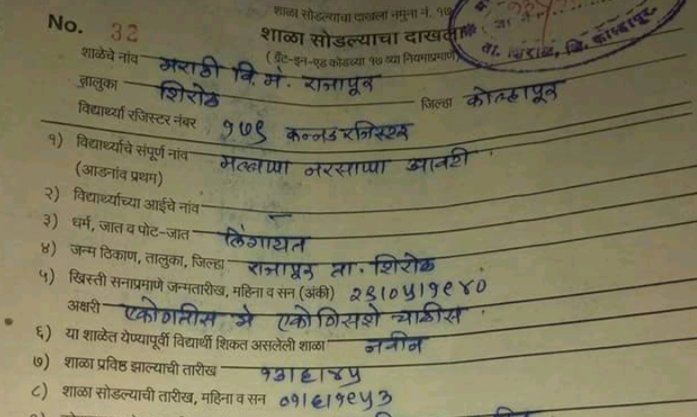 शाळा सोडल्याचा दाखला नमुना नं. १७
No. 32
शाळा सोडल्याचा दाखला
(ग्रँट-इन-एड कोडच्या १७ व्या नियमाप्रमाणे)
ता. शिरोळ, जि. कोल्हापूर.
शाळेचे नांव मराठी वि. मं. राजापूर
तालुका शिरोळ जिल्हा कोल्हापूर
विद्यार्थ्या रजिस्टर नंबर १७९ कन्नड रजिस्टर
१) विद्यार्थ्याचे संपूर्ण नांव मल्लाप्पा नरसाप्पा आवटी
(आडनांव प्रथम)
२) विद्यार्थ्याच्या आईचे नांव —
३) धर्म, जात व पोट-जात लिंगायत
४) जन्म ठिकाण, तालुका, जिल्हा राजापूर ता. शिरोळ
५) ख्रिस्ती सनाप्रमाणे जन्मतारीख, महिना व सन (अंकी) २९।०५।१९४०
अक्षरी एकोणतीस मे एकोणिसशे चाळीस
६) या शाळेत येण्यापूर्वी विद्यार्थी शिकत असलेली शाळा नवीन
७) शाळा प्रविष्ठ झाल्याची तारीख १३।६।४५
८) शाळा सोडल्याची तारीख, महिना व सन ०१।६।१९५३